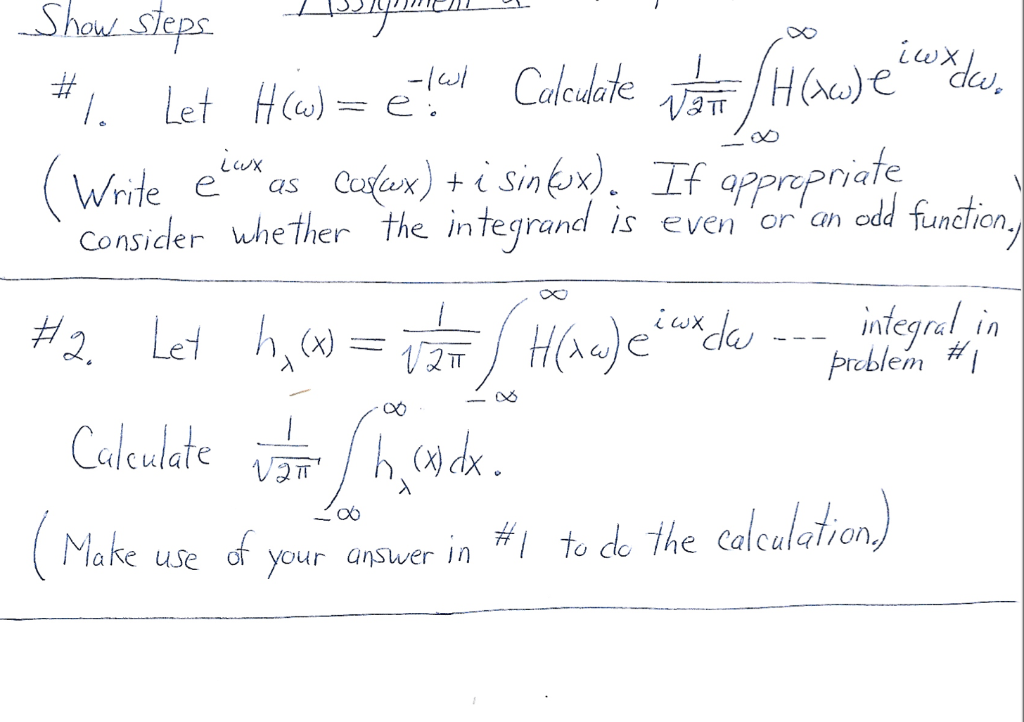 Show steps
#1. Let H(ω) = e^{-|ω|}. Calculate \frac{1}{\sqrt{2π}} \int_{-∞}^{∞} H(λω) e^{iωx} dω.
(Write e^{iωx} as cos(ωx) + i sin(ωx). If appropriate
consider whether the integrand is even or an odd function.)
#2. Let h_λ(x) = \frac{1}{\sqrt{2π}} \int_{-∞}^{∞} H(λω) e^{iωx} dω ---- integral in
problem #1
Calculate \frac{1}{\sqrt{2π}} \int_{-∞}^{∞} h_λ(x) dx.
(Make use of your answer in #1 to do the calculation.)